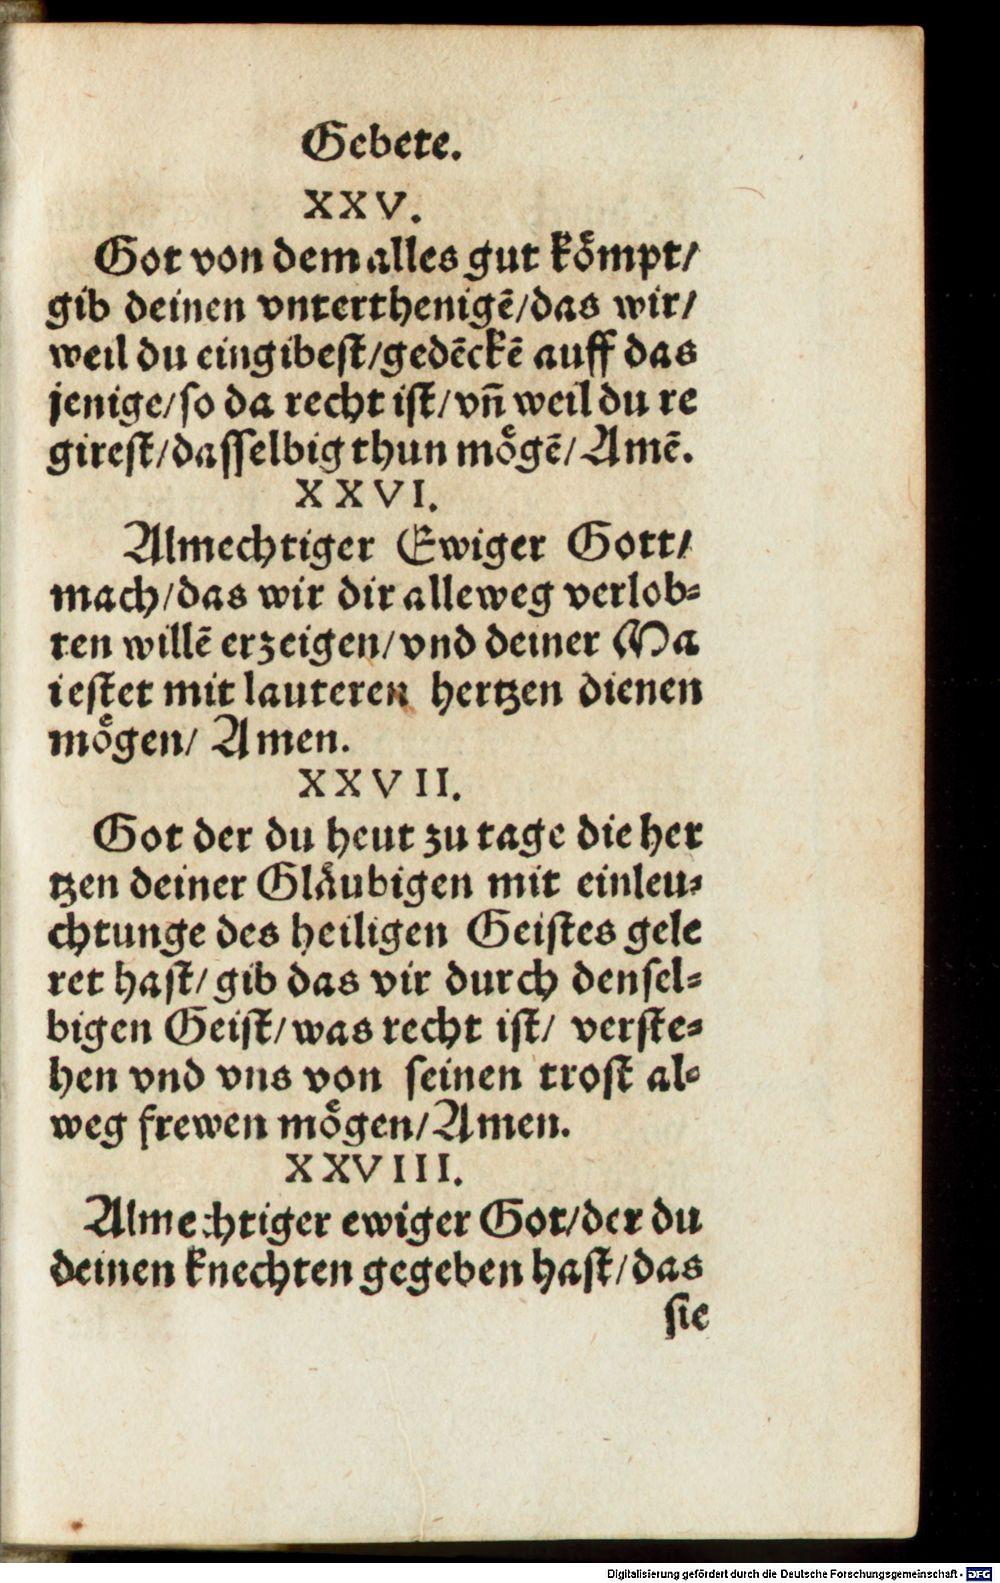 Gebete.
XXV.
Got von dem alles gut kömpt/
gib deinen vnterthenigē/das wir/
weil du eingibest/gedēckē auff das
jenige/so da recht ist/vñ weil du re
girest/dasselbig thun mögē/Amē.
XXVI.
Almechtiger Ewiger Gott/
mach/das wir dir alleweg verlob-
ten willē erzeigen/vnd deiner Ma
iestet mit lauteren hertzen dienen
mögen/ Amen.
XXVII.
Got der du heut zu tage die her
tzen deiner Gläubigen mit einleu-
chtunge des heiligen Geistes gele
ret hast/gib das vir durch densel-
bigen Geist/was recht ist/ verste-
hen vnd vns von seinen trost al-
weg frewen mögen/Amen.
XXVIII.
Almechtiger ewiger Got/der du
deinen knechten gegeben hast/das
sie
Digitalisierung gefördert durch die Deutsche Forschungsgemeinschaft - DFG